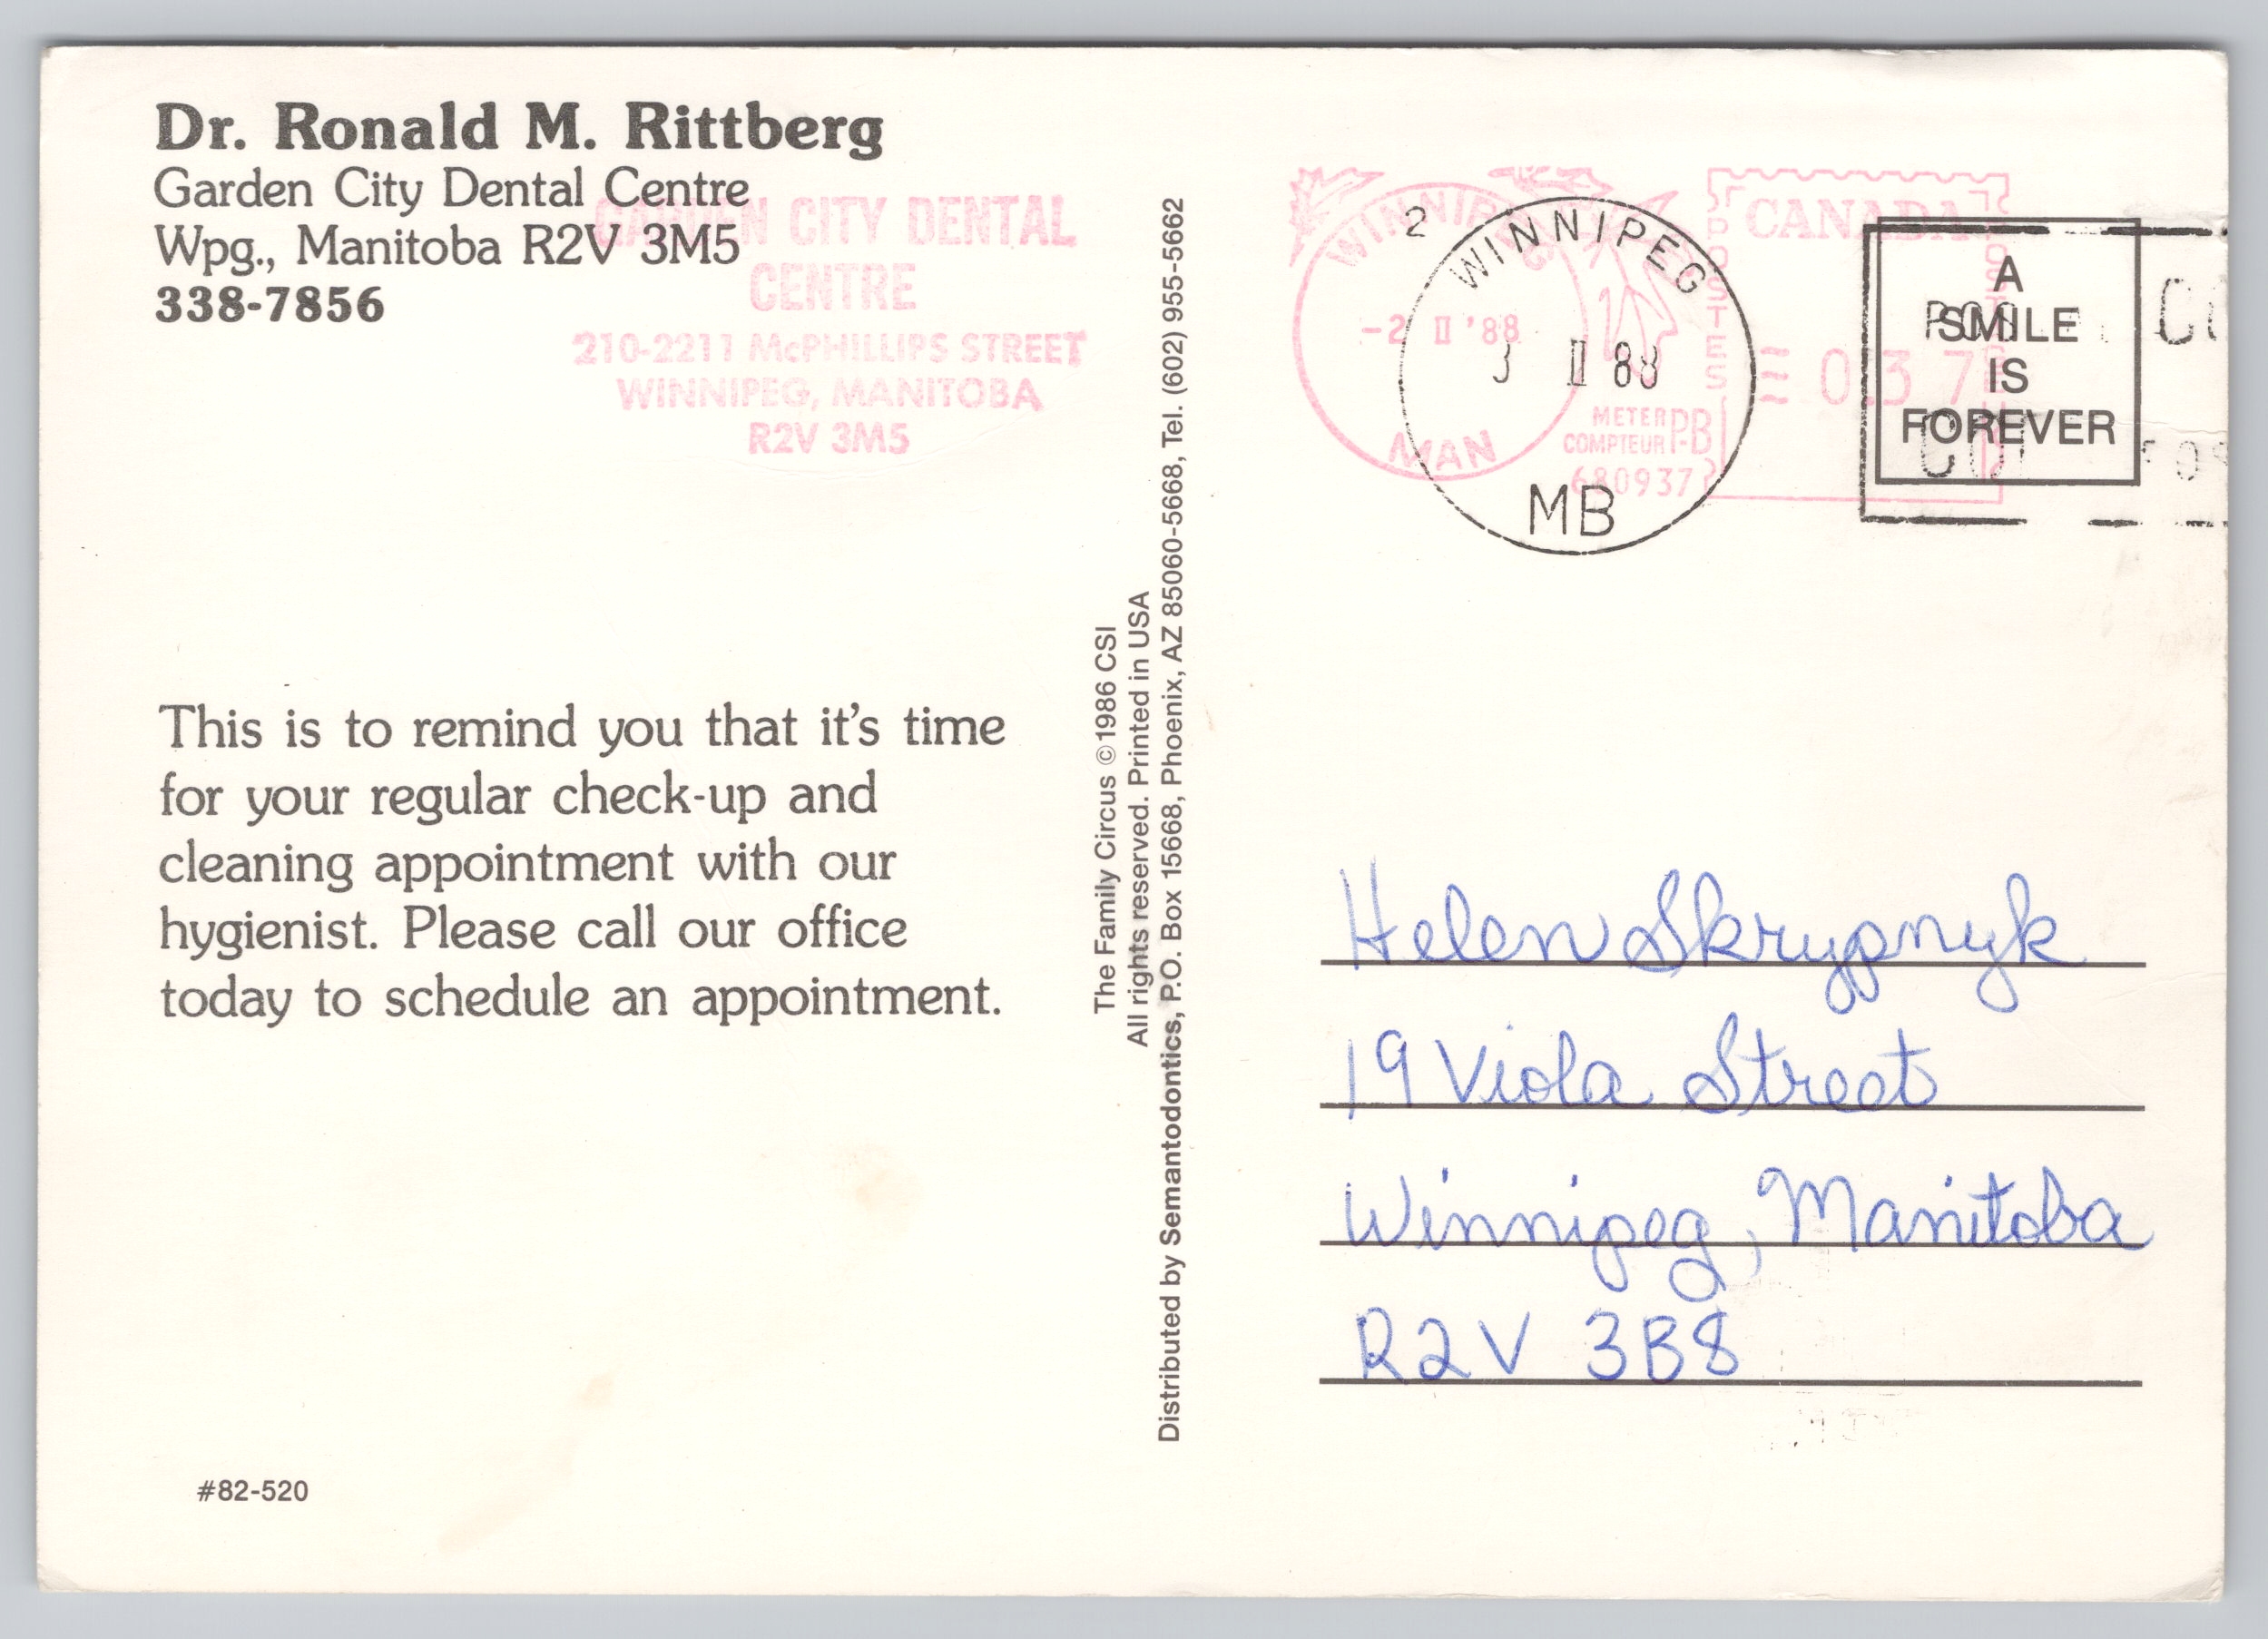 Dr. Ronald M. Rittberg
Garden City Dental Centre
Wpg., Manitoba R2V 3M5
338-7856
GARDEN CITY DENTAL
CENTRE
210-2211 McPHILLIPS STREET
WINNIPEG, MANITOBA
R2V 3M5
This is to remind you that it's time
for your regular check-up and
cleaning appointment with our
hygienist. Please call our office
today to schedule an appointment.
#82-520
The Family Circus ©1986 CSI
All rights reserved. Printed in USA
Distributed by Semantodontics, P.O. Box 15668, Phoenix, AZ 85060-5668, Tel. (602) 955-5662
WINNIPEG
-2 II '88
MAN
CANADA
POSTES
POSTAGE
0.37
METER
COMPTEUR
PB
680937
2
WINNIPEG
3 II 88
MB
A
SMILE
IS
FOREVER
Helen Skrypnyk
19 Viola Street
Winnipeg, Manitoba
R2V 3B8